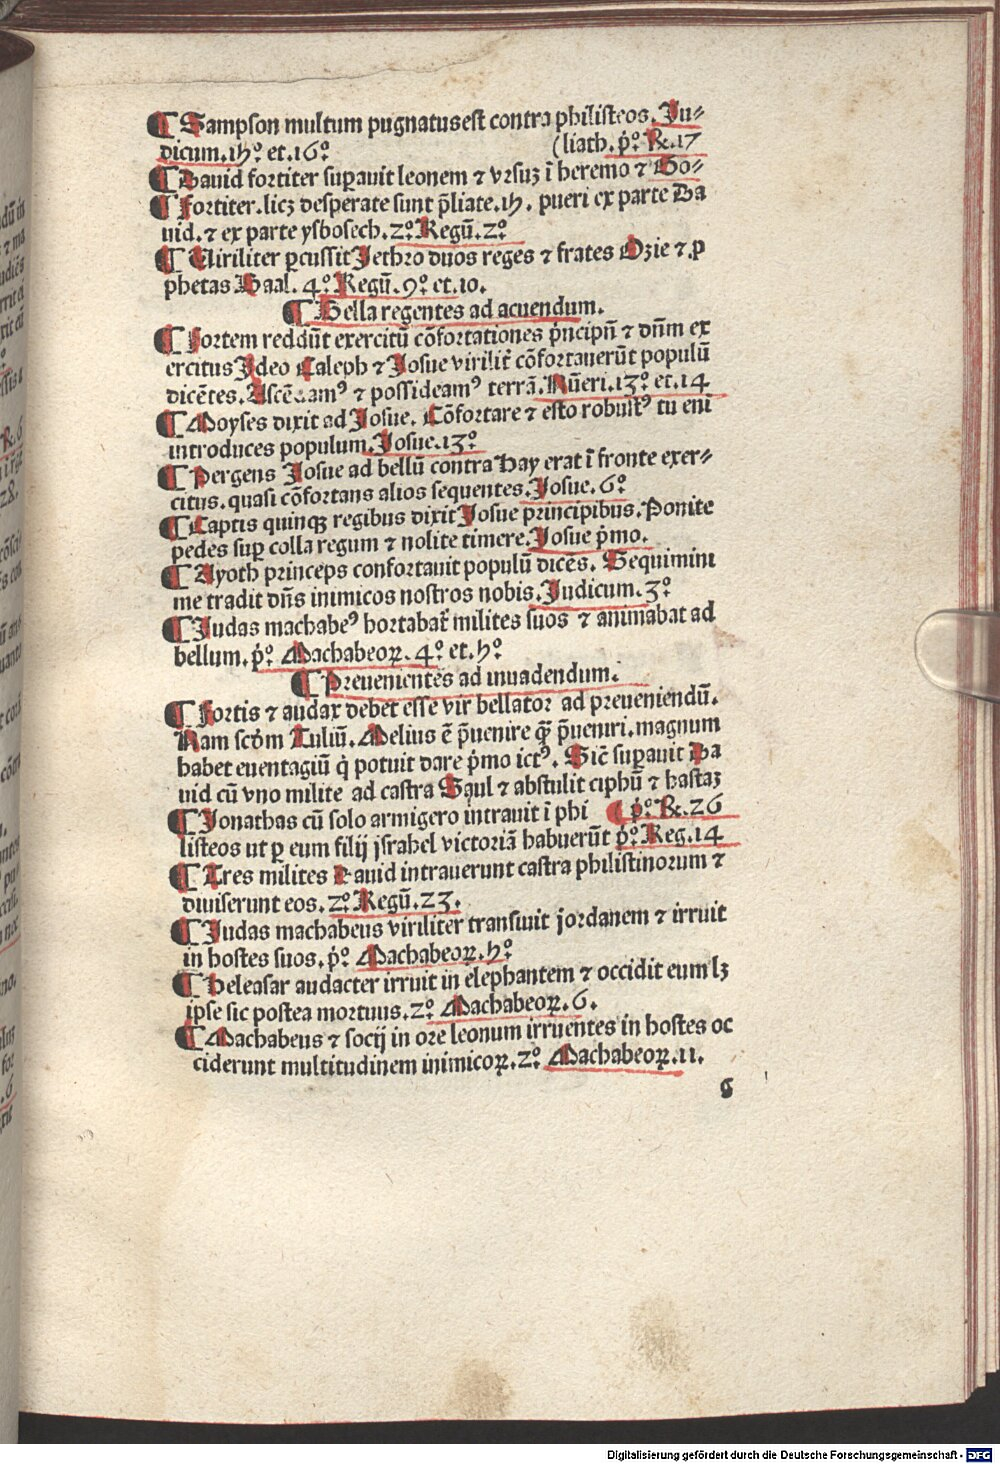 ¶ Sampson multum pugnatus est contra philisteos. Ju-
dicum. 15º et. 16º (liath. p̓º. Re. 17
¶ Dauid fortiter suꝑauit leonem ⁊ vrsuꝫ ī heremo ⁊ Go-
¶ Fortiter. licꝫ desperate sunt p̄liate. 15. pueri ex parte Da
uid. ⁊ ex parte ysbosech. 2º Regū. 2º
¶ Uiriliter ꝑcussit Jethro duos reges ⁊ frates Ozie ⁊ .ꝓ
phetas Baal. 4º Regū. 9º et. 10.
¶ Bella regentes ad acuendum.
¶ Fortem reddūt exercitū cōfortationes p̓ncipū ⁊ dn̄m ex
ercitus Jdeo Caleph ⁊ Josue virilit̓ cōfortauerūt populū
dicētes. Ascēdamꝰ ⁊ possideamꝰ terrā. Nūeri. 13º et. 14
¶ Moyses dixit ad Josue. Cōfortare ⁊ esto robustꝰ tu eni
introduces populum. Josue. 13º
¶ Pergens Josue ad bellū contra Hay erat ī fronte exer-
citus. quasi cōfortans alios sequentes. Josue. 6º
¶ Captis quinqꝫ regibus dixit Josue principibus. Ponite
pedes suꝑ colla regum ⁊ nolite timere. Josue p̓mo.
¶ Ayoth princeps confortauit populū dicēs. Sequimini
me tradit dn̄s inimicos nostros nobis. Judicum. 3º
¶ Judas machabeꝰ hortabat̓ milites suos ⁊ animabat ad
bellum. p̓º. Machabeoꝝ. 4º et. 5º
¶ Preuenientes ad inuadendum.
¶ Fortis ⁊ audax debet esse vir bellator ad preueniendū.
Nam scd̓m Tuliū. Melius ē p̄uenire qꝫ̄ p̄ueniri. magnum
habet euentagiū q̓ potuit dare p̓mo ictꝰ. Sic̄ suꝑauit Da
uid cū vno milite ad castra Saul ⁊ abstulit ciphū ⁊ hastaꝫ
¶ Jonathas cū solo armigero intrauit ī phi ( p̓º. Re. 26
listeos ut ꝑ eum filij jsrahel victoriā habuerūt p̓º. Reg. 14
¶ Tres milites Dauid intrauerunt castra philistinorum ⁊
diuiserunt eos. 2º Regū. 23.
¶ Judas machabeus viriliter transiuit jordanem ⁊ irruit
in hostes suos. p̓º. Machabeoꝝ. 5º
¶ Heleasar audacter irruit in elephantem ⁊ occidit eum lꝫ
ipse sic postea mortuus. 2º Machabeoꝝ. 6.
¶ Machabeus ⁊ socij in ore leonum irruentes in hostes oc
ciderunt multitudinem inimicoꝝ. 2º Machabeoꝝ. 11.
Digitalisierung gefördert durch die Deutsche Forschungsgemeinschaft - DFG